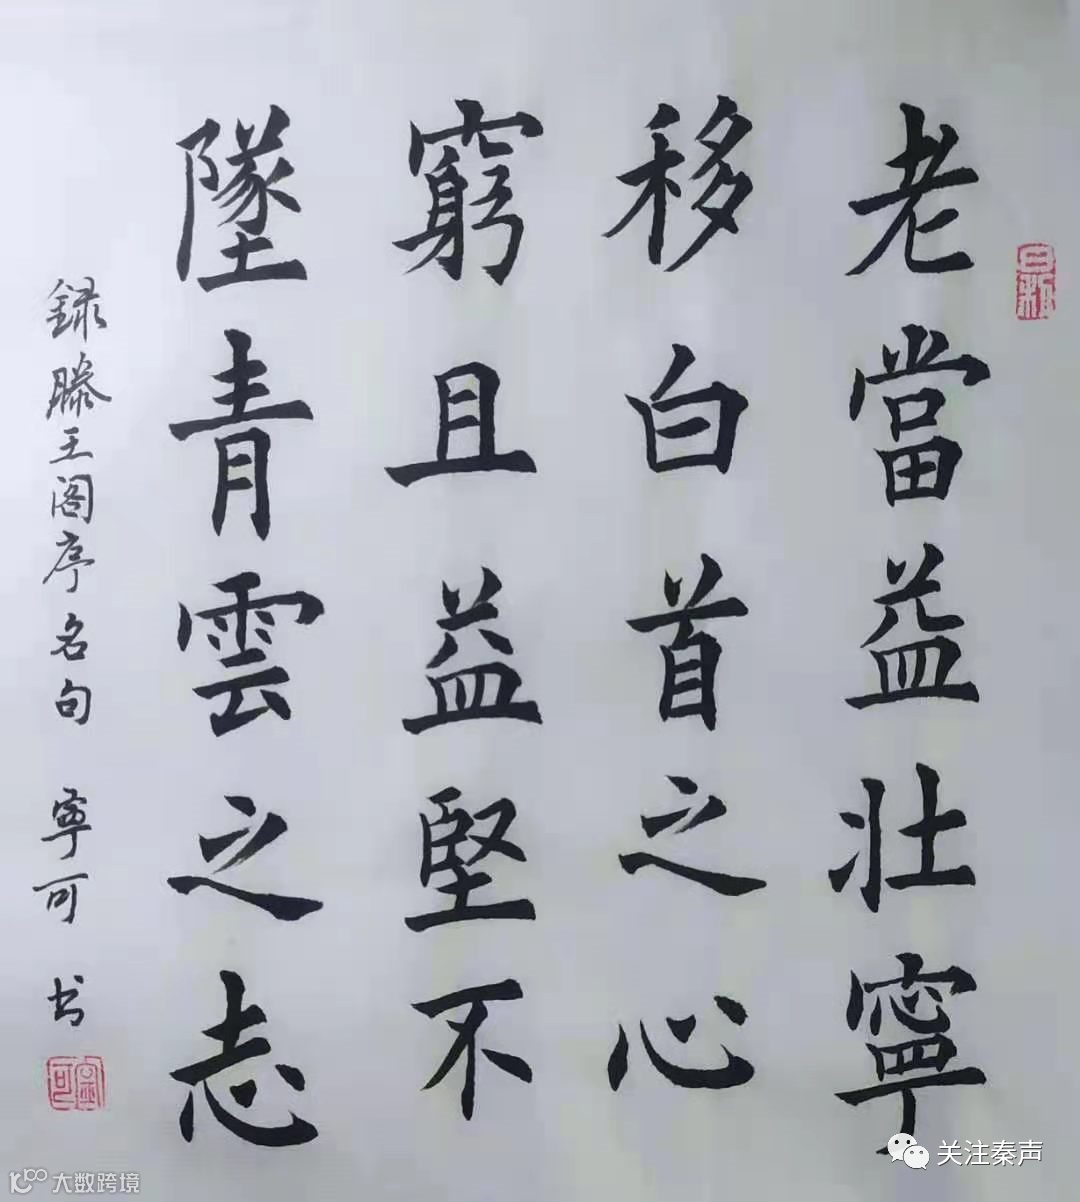 老當益壯寧
移白首之心
窮且益堅不
墜青雲之志
録滕王阁序名句 寧可 书
寧可
关注秦声
大数跨境